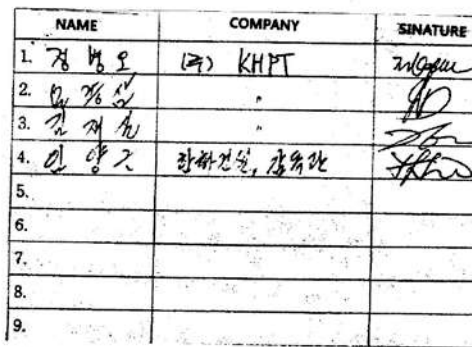 NAME COMPANY SINATURE
1. 정병오 (주) KHPT
2. "
3. 김재실 "
4. 안양근 한화건설, 감독관
5.
6.
7.
8.
9.